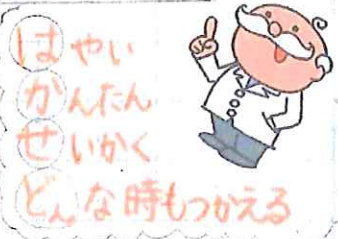 はやい
かんたん
せいかく
どんな時もつかえる